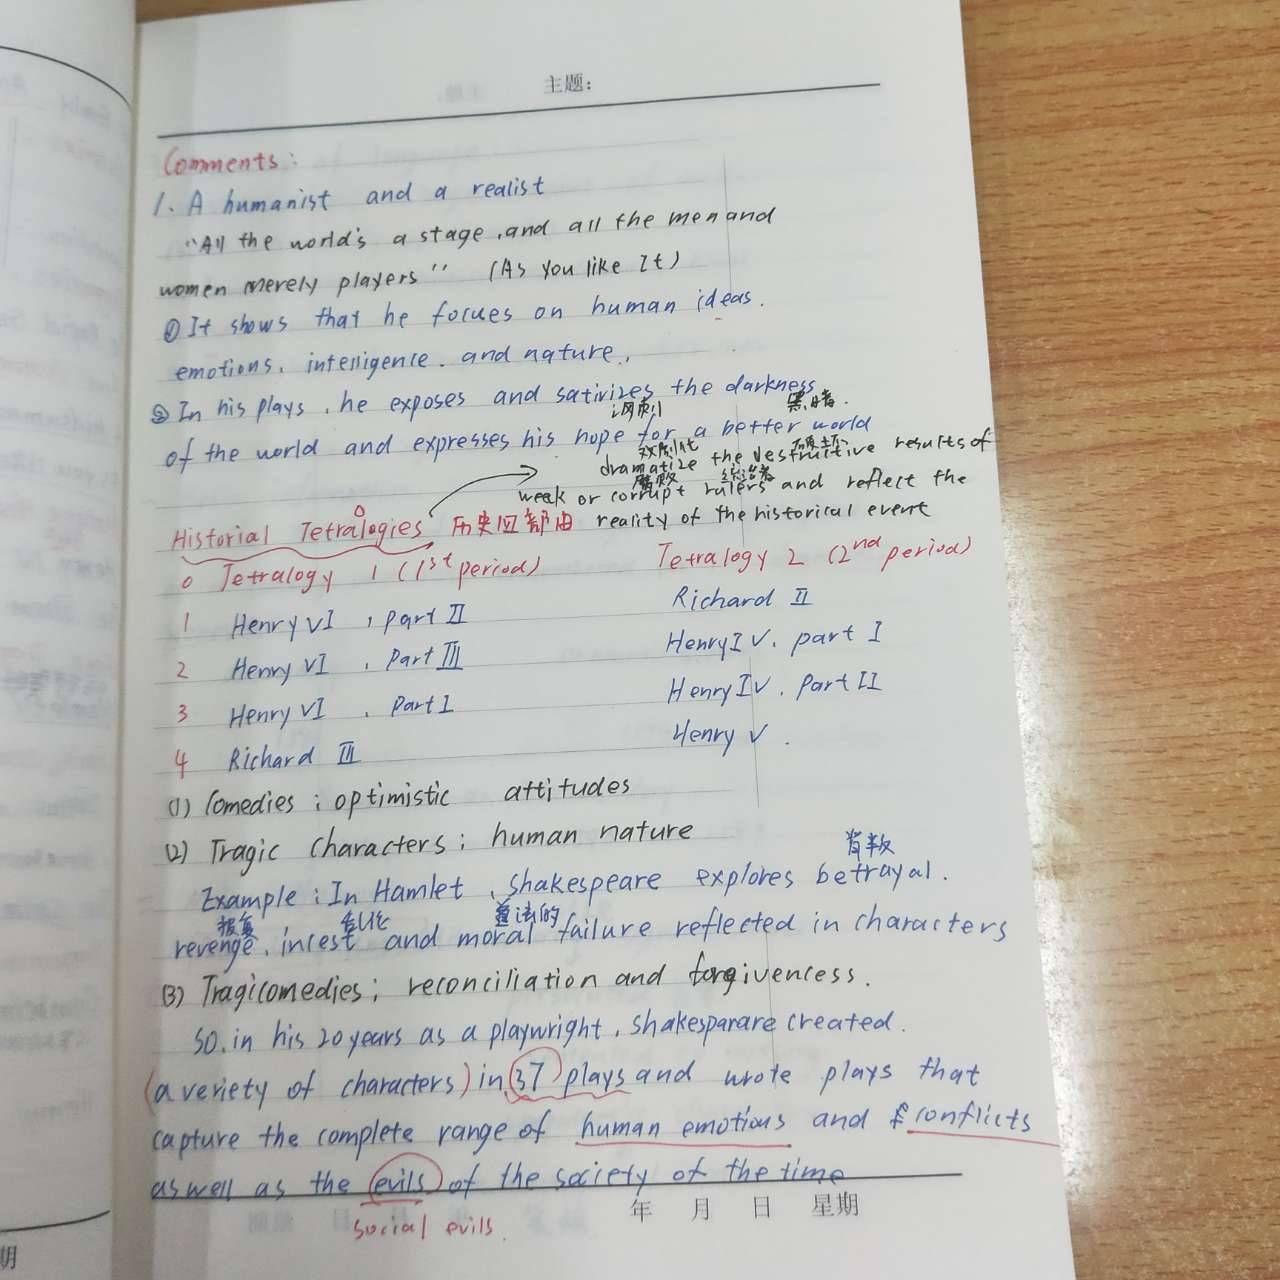 主题:
Comments:
1. A humanist and a realist
"All the world's a stage, and all the men and
women merely players" (As You like It)
① It shows that he forcues on human ideas.
emotions, intelligence. and nature.
② In his plays, he exposes and sativizes the darkness
讽刺 黑暗.
of the world and expresses his hope for a better world
戏剧化 破坏
dramatize the destructive results of
腐败 统治者
week or corrupt rulers and reflect the
Historial Tetralogies 历史四部曲 reality of the historical event
0 Tetralogy 1 (1st period) Tetralogy 2 (2nd period)
1 Henry VI, part II Richard II
2 Henry VI, Part III Henry IV, part I
3 Henry VI, Part I Henry IV, Part II
4 Richard III Henry V.
(1) Comedies: optimistic attitudes
(2) Tragic characters: human nature
背叛
Example: In Hamlet, Shakespeare explores betrayal.
报复 乱伦 道法的
revenge, incest and moral failure reflected in characters
(3) Tragicomedies: reconciliation and forgivencess.
So, in his 20 years as a playwright, Shakesparare created.
(a veriety of characters) in 37 plays and wrote plays that
capture the complete range of human emotions and conflicts
as well as the evils of the society of the time
年 月 日 星期
social evils.
期